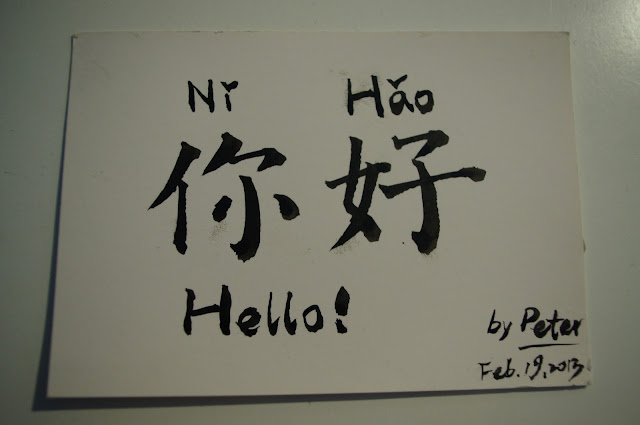 Nǐ Hǎo
你好
Hello!
by Peter
Feb. 19, 2013